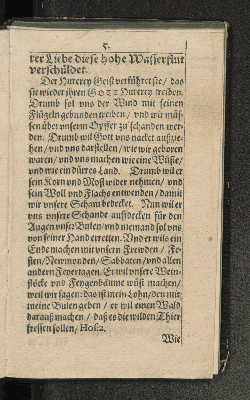 5.
rer Liebe diese hohe Wasserflut
verschuͤldet.
Der Hurerey Geist verfuͤhret sie/ das
sie wieder jhren GOTT Hurerey treiben.
Drumb sol vns der Wind mit seinen
Fluͤgeln gebunden treiben/ vnd wir muͤs-
sen uͤber vnserm Opffer zu schanden wer-
den. Drumb wil Gott vns nacket auszie-
hen/ vnd vns darstellen/ wie wir geboren
waren/ vnd vns machen wie eine Wuͤste/
vnd wie ein duͤrres Land. Drumb wil er
sein Korn vnd Most wider nehmen/ vnd
sein Woll vnd Flachs entwenden/ damit
wir vnsere Scham bedecket. Nun wil er
vns vnsere Schande auffdecken fuͤr den
Augen vnser Bulen/ vnd niemand sol vns
von seiner Hand erretten. Vnd er wils ein
Ende machen mit vnsern Frewden/ Fe-
sten/ Newmonden/ Sabbaten/ vnd allen
andern Feyertagen. Er wil vnsere Wein-
stoͤcke vnd Feygenbaͤume wuͤst machen/
weil wir sagen: das ist mein Lohn/ den mir
meine Bulen geben/ er wil einen Wald
daraus machen/ das es die wilden Thier
fressen sollen/ Hos. 2.
Wie